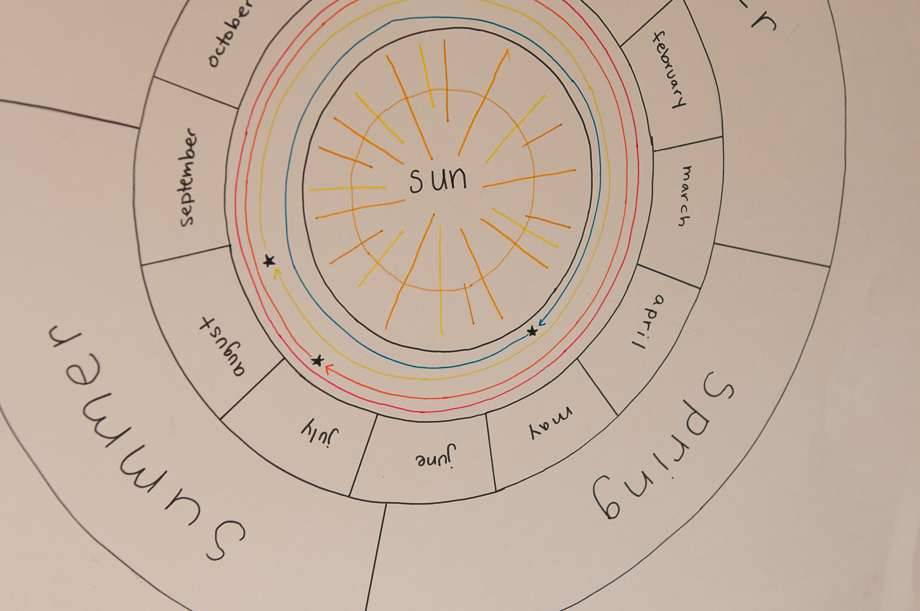 sun
february
march
april
may
june
july
august
september
october
Spring
Summer